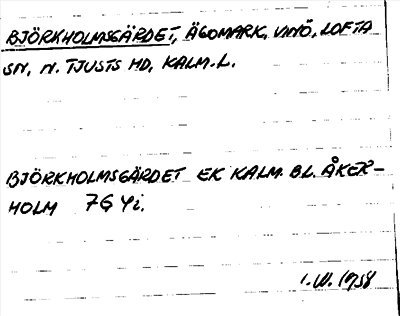 BJÖRKHOLMSGÄRDET, ÄGOMARK, VINÖ, LOFTA
SN, N. TJUSTS HD, KALM. L.
BJÖRKHOLMSGÄRDET EK KALM. BL. ÅKER-
HOLM 7G Yi.
I.W. 1958